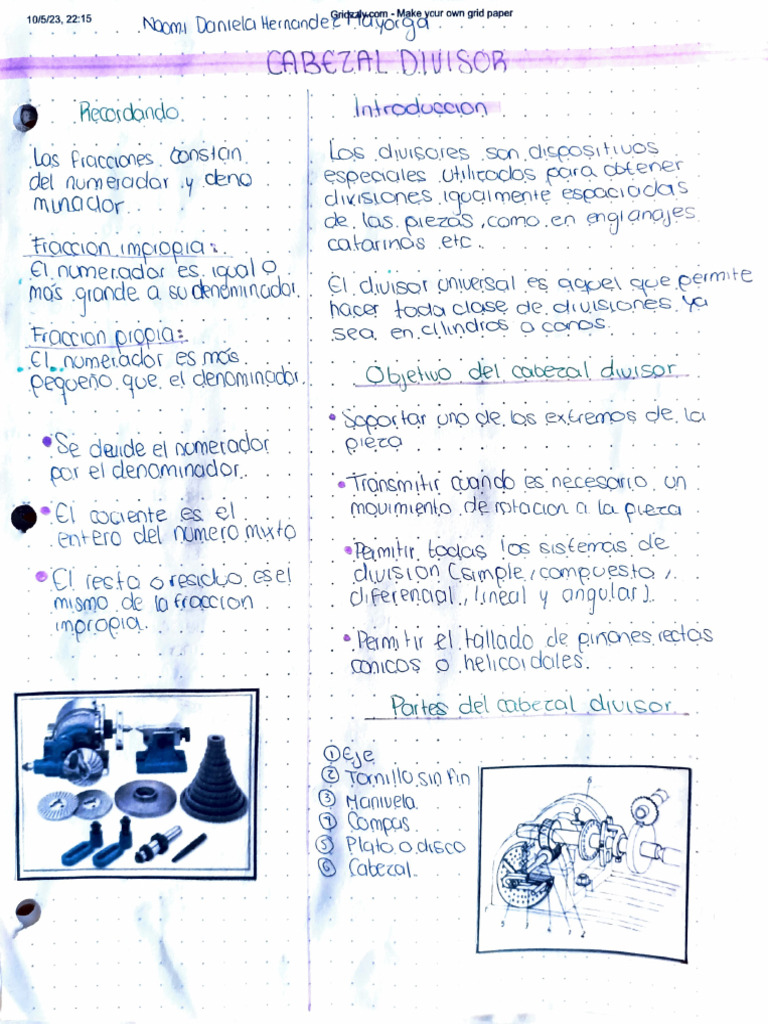 10/5/23, 22:15
Gridzzly.com - Make your own grid paper
Naomi Daniela Hernandez Mayorga
CABEZAL DIVISOR
Recordando
Las fracciones constan
del numerador y deno
minador
Fraccion impropia:
El numerador es igual o
más grande a su denominador.
Fraccion propia:
El numerador es más
pequeño que el denominador.
• Se devide el numerador
por el denominador.
• El cociente es el
entero del número mixto
• El resto o residuo es el
mismo de la fraccion
impropia.
Introduccion
Los divisores son dispositivos
especiales utilizados para obtener
divisiones igualmente espaciadas
de las piezas, como en englanajes
catarinas etc.
El divisor universal es aquel que permite
hacer toda clase de divisiones ya
sea en cilindros o conos.
Objetivo del cabezal divisor
• Soportar uno de los extremos de la
pieza
• Transmitir cuando es necesario un
movimiento de rotacion a la pieza
• Permitir todas los sistemas de
división (simple, compuesta,
diferencial, lineal y angular).
• Permitir el tallado de piñones rectos
conicos o helicoidales.
Partes del cabezal divisor
① Eje
② Tornillo sin fin
③ Manivela
④ Compas
⑤ Plato o disco
⑥ Cabezal